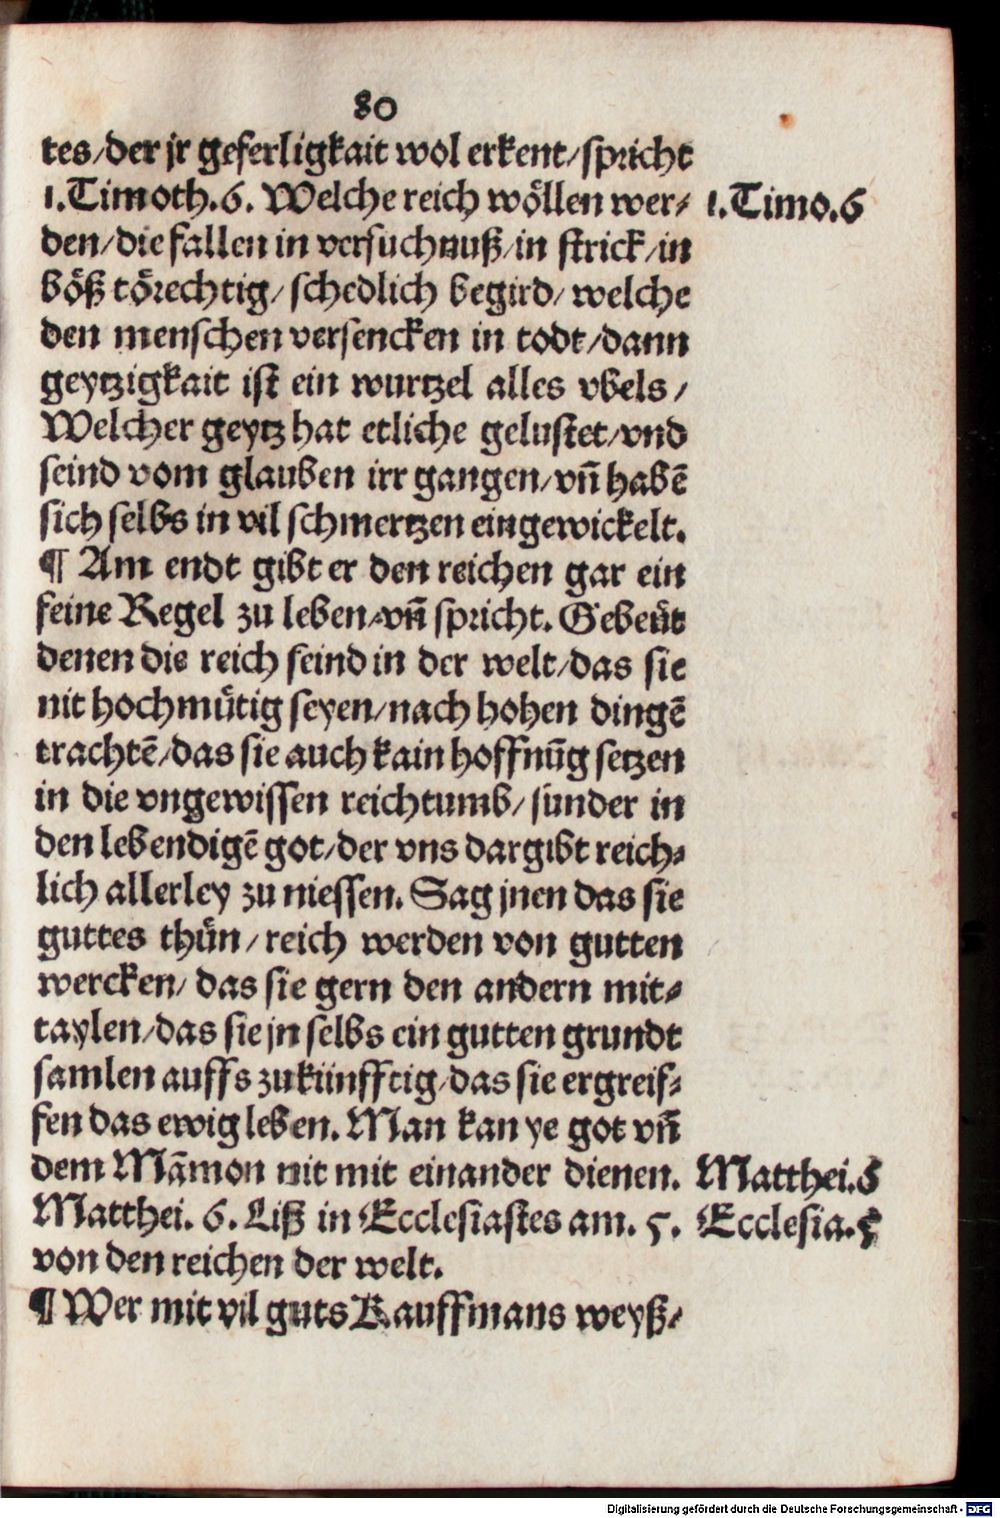 80
tes/der jr geferligkait wol erkent/spricht
1.Timoth.6. Welche reich wöllen wer⸗ 1.Timo.6
den/die fallen in versuchnuß/in strick/in
böß törechtig/ schedlich begird/ welche
den menschen versencken in todt/dann
geytzigkait ist ein wurtzel alles vbels/
Welcher geytz hat etliche gelustet/vnd
seind vom glauben irr gangen/vñ habē
sich selbs in vil schmertzen eingewickelt.
¶ Am endt gibt er den reichen gar ein
feine Regel zu leben/vñ spricht. Gebeüt
denen die reich seind in der welt/das sie
nit hochmütig seyen/nach hohen dingē
trachtē/das sie auch kain hoffnūg setzen
in die vngewissen reichtumb/ sunder in
den lebendigē got/der vns dargibt reich⸗
lich allerley zu niessen. Sag jnen das sie
guttes thün/ reich werden von gutten
wercken/ das sie gern den andern mit⸗
taylen/das sie jn selbs ein gutten grundt
samlen auffs zukünfftig/das sie ergreif⸗
fen das ewig leben. Man kan ye got vñ
dem Māmon nit mit einander dienen. Matthei.6
Matthei. 6. Liß in Ecclesiastes am. 5. Ecclesia.5
von den reichen der welt.
¶ Wer mit vil guts Kauffmans weyß/
Digitalisierung gefördert durch die Deutsche Forschungsgemeinschaft - DFG